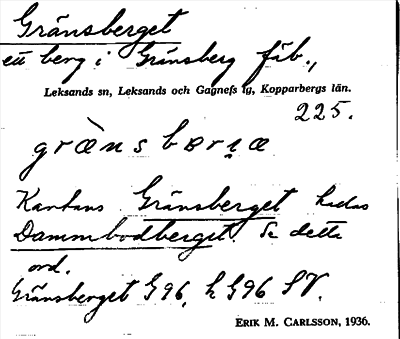 Gränsberget
ett berg i Gränsberg fäb.,
Leksands sn, Leksands och Gagnefs tg, Kopparbergs län.
225.
gràns bærɪæ
Kartans Gränsberget kallas
Dammbodberget. Se detta
ord.
Gränsberget G96, h G96 SV.
ERIK M. CARLSSON, 1936.